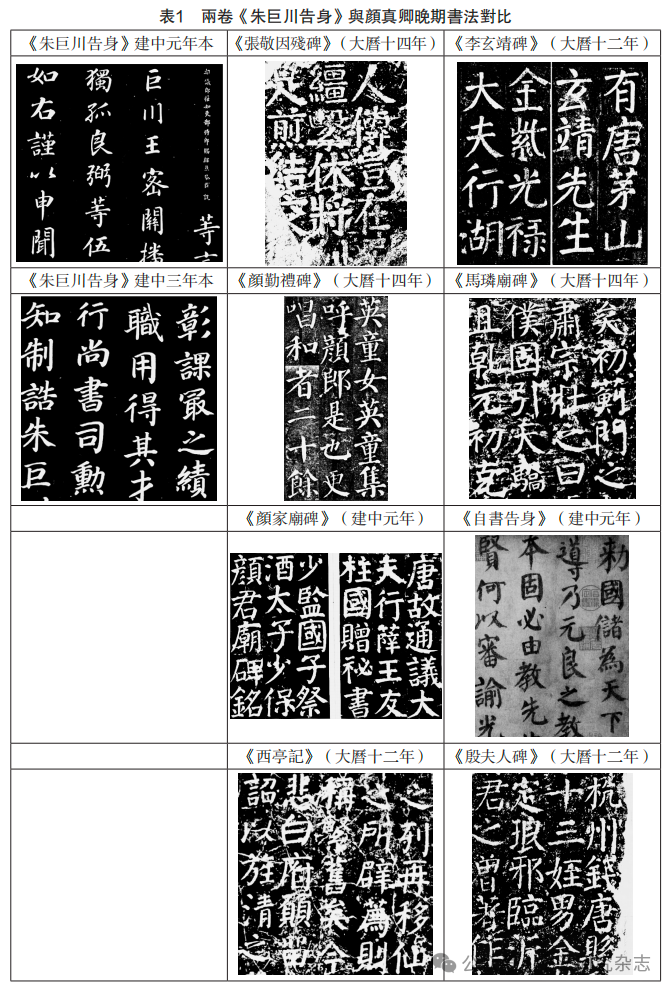 表1 兩卷《朱巨川告身》與顏真卿晚期書法對比
《朱巨川告身》建中元年本
《張敬因殘碑》(大曆十四年)
《李玄靖碑》(大曆十二年)
等言
巨川王密關播
獨孤良弼等伍
如右謹以申聞
繮繫休將
有唐茅山
玄靖先生
金紫光祿
大夫行湖
《朱巨川告身》建中三年本
《顏勤禮碑》(大曆十四年)
《馬璘廟碑》(大曆十四年)
彰課冣之績
職用得其才
行尚書司勳
知制誥朱巨
英童女英童集
呼顏郎是也更
唱和者二十餘
矣初薊門之
肅宗壯之曰
僕固引
乾元初克
《顏家廟碑》(建中元年)
《自書告身》(建中元年)
唐故通議大
夫行薛王友
柱國贈祕書
少監國子祭
酒太子少保
顏君廟碑銘
勅國儲為天下
導乃元良之教
本固必由教先
賢何以審諭光
《西亭記》(大曆十二年)
《殷夫人碑》(大曆十二年)
之列再移仙
所辟為則
舊矣今
詔以旌清之
杭州錢唐縣
十三姪男金
定琅邪臨沂
君之曾
杂志